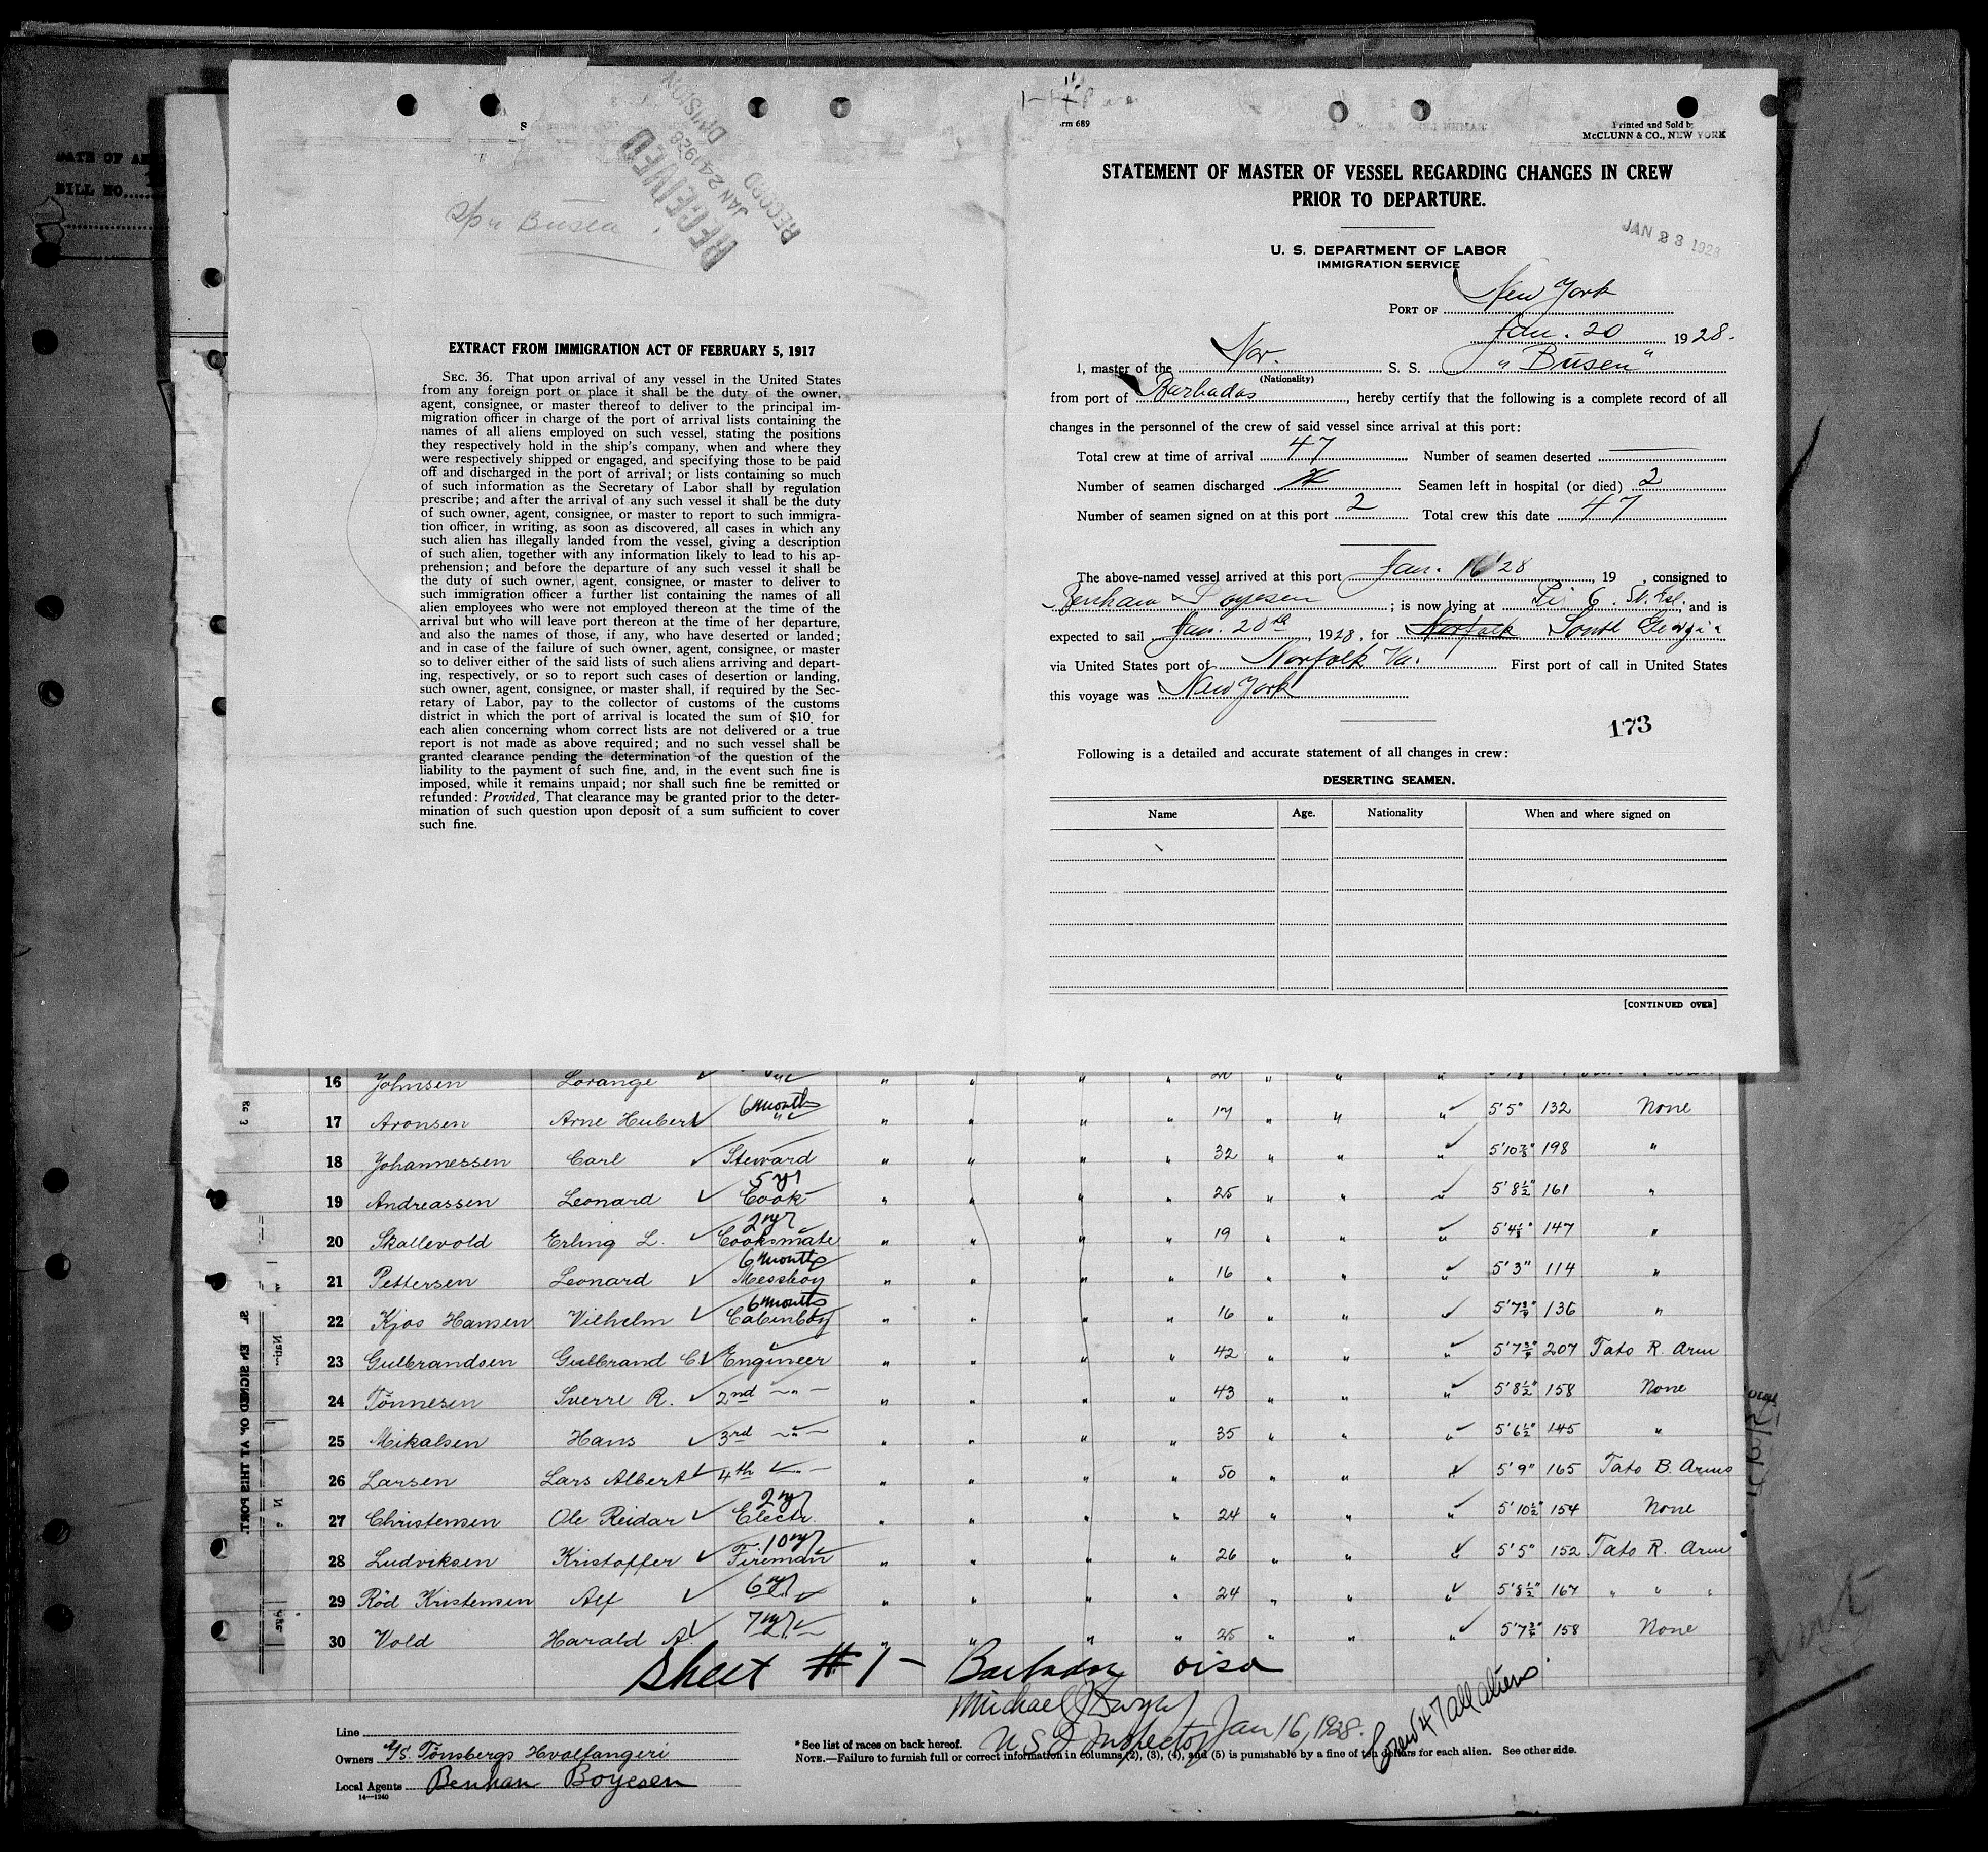 DATE OF
BILL NO.
S/S Busen
RECEIVED
JAN 24 1928
RECORD DIVISION
EXTRACT FROM IMMIGRATION ACT OF FEBRUARY 5, 1917
SEC. 36. That upon arrival of any vessel in the United States
from any foreign port or place it shall be the duty of the owner,
agent, consignee, or master thereof to deliver to the principal im-
migration officer in charge of the port of arrival lists containing the
names of all aliens employed on such vessel, stating the positions
they respectively hold in the ship's company, when and where they
were respectively shipped or engaged, and specifying those to be paid
off and discharged in the port of arrival; or lists containing so much
of such information as the Secretary of Labor shall by regulation
prescribe; and after the arrival of any such vessel it shall be the duty
of such owner, agent, consignee, or master to report to such immigra-
tion officer, in writing, as soon as discovered, all cases in which any
such alien has illegally landed from the vessel, giving a description
of such alien, together with any information likely to lead to his ap-
prehension; and before the departure of any such vessel it shall be
the duty of such owner, agent, consignee, or master to deliver to
such immigration officer a further list containing the names of all
alien employees who were not employed thereon at the time of the
arrival but who will leave port thereon at the time of her departure,
and also the names of those, if any, who have deserted or landed;
and in case of the failure of such owner, agent, consignee, or master
so to deliver either of the said lists of such aliens arriving and depart-
ing, respectively, or so to report such cases of desertion or landing,
such owner, agent, consignee, or master shall, if required by the Sec-
retary of Labor, pay to the collector of customs of the customs
district in which the port of arrival is located the sum of $10. for
each alien concerning whom correct lists are not delivered or a true
report is not made as above required; and no such vessel shall be
granted clearance pending the determination of the question of the
liability to the payment of such fine, and, in the event such fine is
imposed, while it remains unpaid; nor shall such fine be remitted or
refunded: Provided, That clearance may be granted prior to the deter-
mination of such question upon deposit of a sum sufficient to cover
such fine.
rm 689
Printed and Sold b
McCLUNN & CO., NEW YORK
STATEMENT OF MASTER OF VESSEL REGARDING CHANGES IN CREW
PRIOR TO DEPARTURE.
JAN 23 1928
U. S. DEPARTMENT OF LABOR
IMMIGRATION SERVICE
PORT OF New York
Jan. 20 1928.
I, master of the Nor. S. S. "Busen"
(Nationality)
from port of Barbados, hereby certify that the following is a complete record of all
changes in the personnel of the crew of said vessel since arrival at this port:
Total crew at time of arrival 47 Number of seamen deserted —
Number of seamen discharged Seamen left in hospital (or died) 2
Number of seamen signed on at this port 2 Total crew this date 47
The above-named vessel arrived at this port Jan. 16 28, 19 , consigned to
Benham & Boyesen; is now lying at Pier 6. St. Isl.; and is
expected to sail Jan. 20th, 1928, for Norfolk South Georgia
via United States port of Norfolk Va. First port of call in United States
this voyage was New York
173
Following is a detailed and accurate statement of all changes in crew:
DESERTING SEAMEN.
Name Age. Nationality When and where signed on
[CONTINUED OVER]
16 Johnsen Lorange " " " " 20 " " "
17 Aronsen Arne Hubert 6 months " " " " " 17 " " " 5'5" 132 None
18 Johannessen Carl Steward " " " " 32 " " " 5'10⅞" 198 "
19 Andreassen Leonard 5 yr Cook " " " " 25 " " " 5'8½" 161 "
20 Skallevold Erling L. 2 yr Cooksmate " " " " 19 " " " 5'4⅛" 147 "
21 Pettersen Leonard 6 months Messboy " " " " 16 " " " 5'3" 114 "
22 Kjos Hansen Vilhelm 6 months Cabinboy " " " " 16 " " " 5'7¾" 136 "
23 Gulbrandsen Gulbrand C. Engineer " " " " 42 " " " 5'7¾" 207 Tato R. Arm
24 Tönnesen Sverre R. 2nd —"— " " " " 43 " " " 5'8½" 158 None
25 Mikalsen Hans 3rd —"— " " " " 35 " " " 5'6½" 145 "
26 Larsen Lars Albert 4th —"— " " " " 50 " " " 5'9" 165 Tato B. Arms
27 Christensen Ole Reidar 2 yr Electr. " " " " 24 " " " 5'10½" 154 None
28 Ludviksen Kristoffer 10 yr Fireman " " " " 26 " " " 5'5" 152 Tato R. Arm
29 Röd Kristensen Alf 6 yr —"— " " " " 24 " " " 5'8½" 167 " " "
30 Vold Harald A. 7 yr —"— " " " " 25 " " " 5'7¾" 158 None
Sheet #1 - Barbados visa
Jan 16, 1928.
U S I Inspector
Crew 47 all aliens
Line
Owners A/S. Tönsbergs Hvalfangeri
Local Agents Benham Boyesen
14—1240
* See list of races on back hereof.
NOTE.—Failure to furnish full or correct information in columns (2), (3), (4), and (5) is punishable by a fine of ten dollars for each alien. See other side.